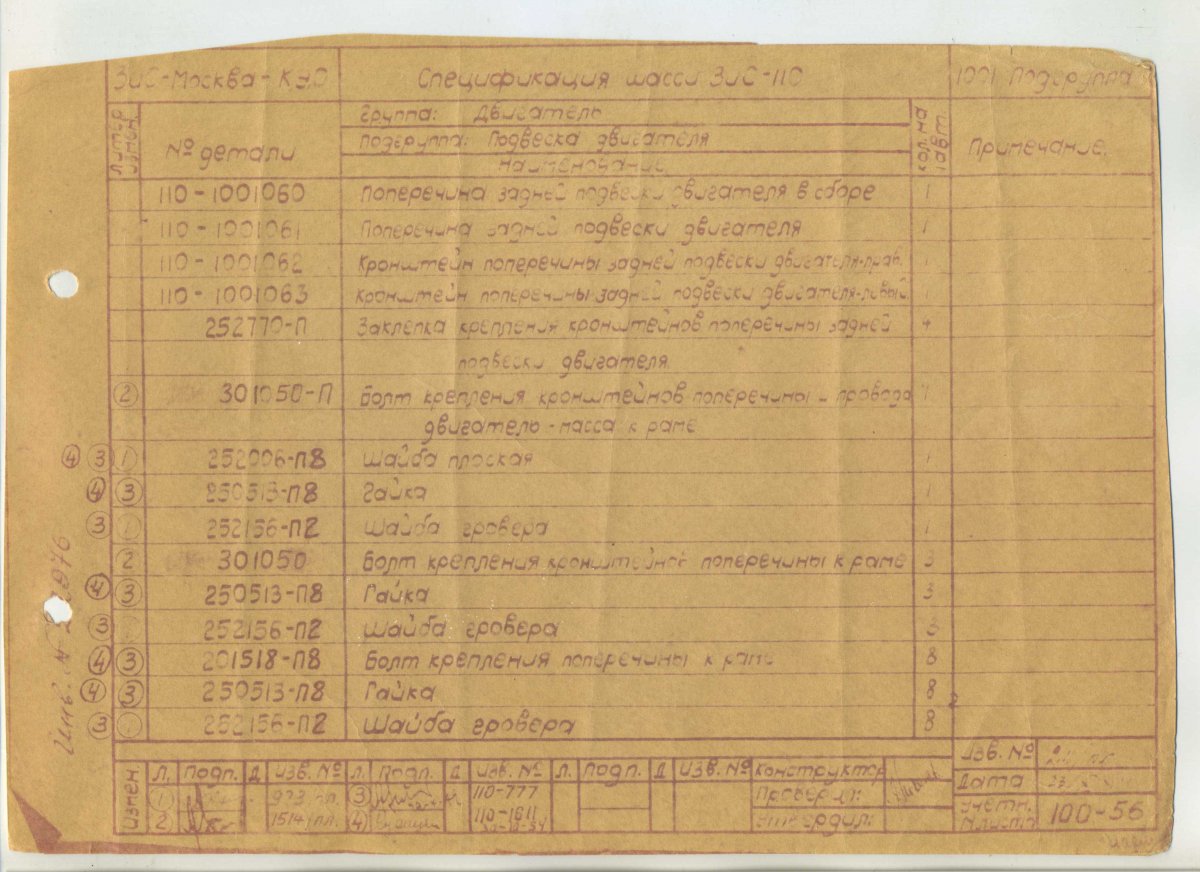 ЗиС-Москва-КЭО Спецификация шасси ЗиС-110 1001 Подгруппа
Литер измен. № детали Группа: Двигатель кол. на 1 авт. Примечание.
Подгруппа: Подвеска двигателя
Наименование
110-1001060 Поперечина задней подвески двигателя в сборе 1
110-1001061 Поперечина задней подвески двигателя 1
110-1001062 Кронштейн поперечины задней подвески двигателя-прав. 1
110-1001063 Кронштейн поперечины задней подвески двигателя-левый 1
252770-П Заклепка крепления кронштейнов поперечины задней 4
подвески двигателя
2 301050-П Болт крепления кронштейнов поперечины и провода 1
двигатель-масса к раме
4 3 1 252006-П8 Шайба плоская 1
4 3 250513-П8 Гайка 1
3 1 252156-П2 Шайба гровера 1
2 301050 Болт крепления кронштейнов поперечины к раме 3
4 3 250513-П8 Гайка 3
3 252156-П2 Шайба гровера 3
4 3 201518-П8 Болт крепления поперечины к раме 8
4 3 250513-П8 Гайка 8
3 252156-П2 Шайба гровера 8
Инв. №
Измен Л. Подп. Д Изв. № Л. Подп. Д Изв. № Л. Подп. Д Изв. № Конструктор Изв. №
1 973 пл. 3 110-777 Проверил: Дата
2 1514 пл. 4 110-1611 Утвердил: Учетн. № листа 100-56